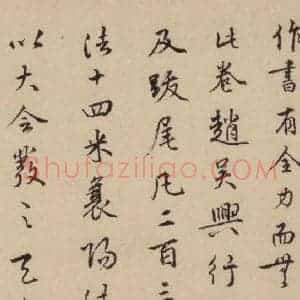 作書有全力而無
此卷趙吳興行
及跋尾凡二百
法十四米襄陽
以大令發之
Shufaziliao.com